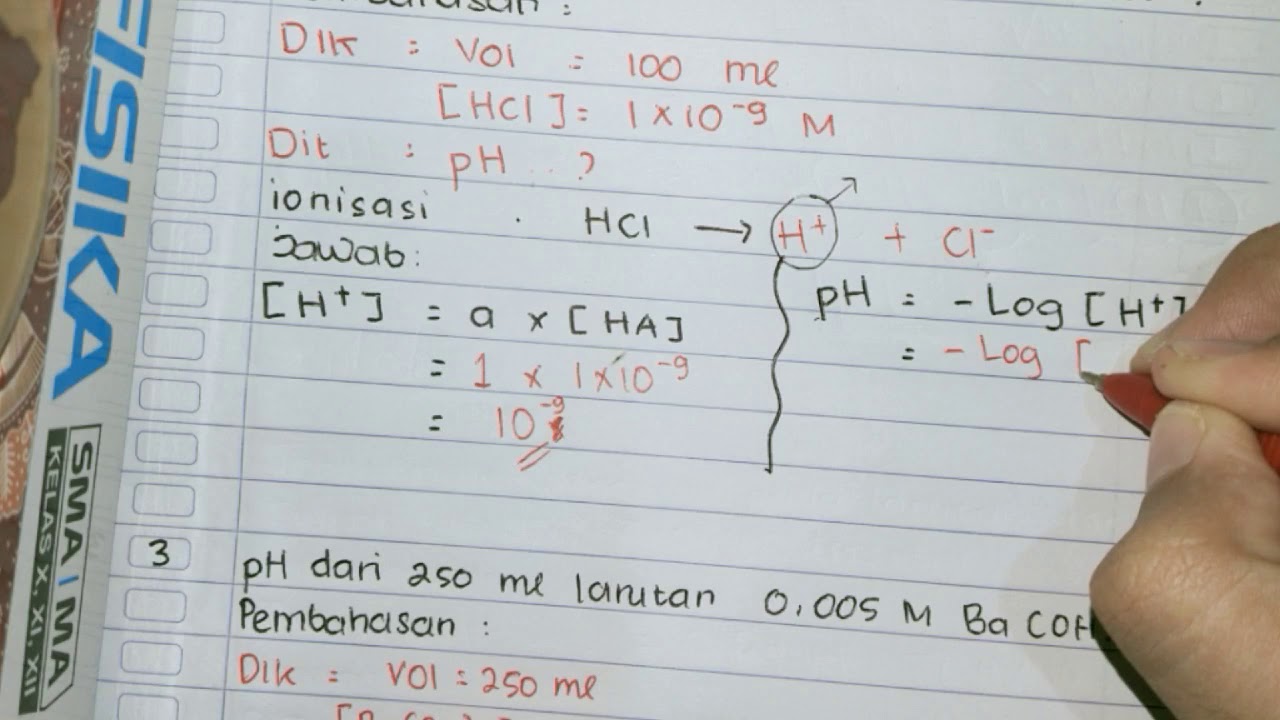 Dik : Vol = 100 ml
[HCl] = 1 x 10⁻⁹ M
Dit : pH .. ?
ionisasi . HCl → H⁺ + Cl⁻
Jawab:
[H⁺] = a x [HA]
= 1 x 1x10⁻⁹
= 10⁻⁹
pH = - Log [H⁺]
= - Log [
3 pH dari 250 ml larutan 0,005 M Ba (OH
Pembahasan :
Dik = Vol = 250 ml
FISIKA
SMA | MA
KELAS X, XI, XII